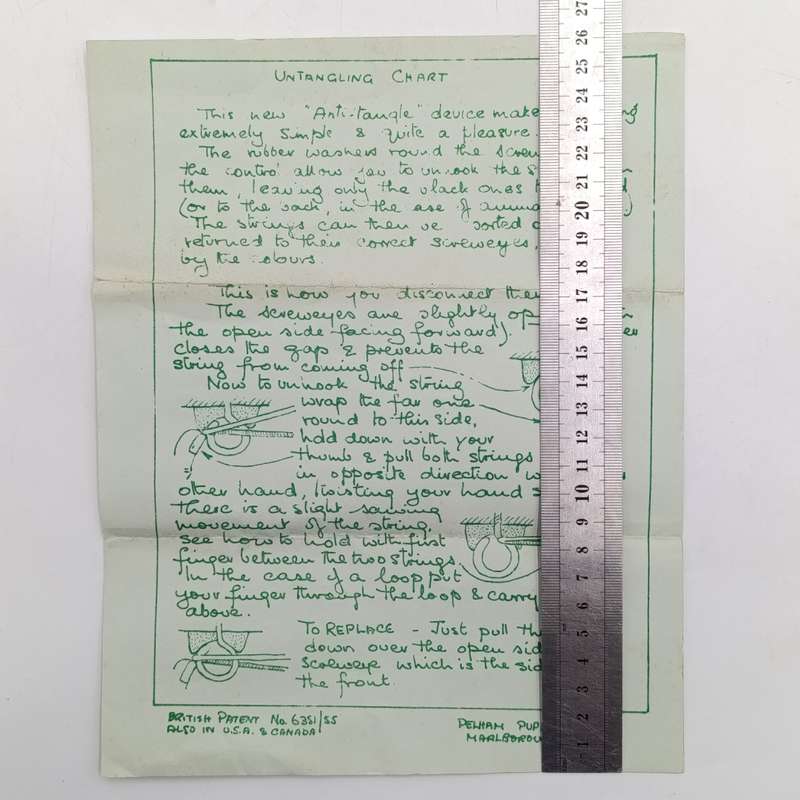 UNTANGLING CHART
This new "Anti-tangle" device make
extremely simple & quite a pleasure.
The rubber washers round the screw
the control allow you to unhook the s
them, leaving only the black ones
(or to the back, in the case of anima
The strings can then be sorted
returned to their correct screweyes,
by the colours.
This is how you disconnect them
The screweyes are slightly op
the open side facing forward).
closes the gap & prevents the
string from coming off
Now to unhook the string
wrap the far one
round to this side,
hold down with your
thumb & pull both strings
in opposite direction w
other hand, twisting your hand s
there is a slight sawing
movement of the string.
See how to hold with first
finger between the two strings.
In the case of a loop put
your finger through the loop & carry
above.
TO REPLACE - Just pull th
down over the open sid
screweye which is the sid
the front.
BRITISH PATENT No. 6351/55
ALSO IN U.S.A. & CANADA
PELHAM PUP
MARLBOROU
1 2 3 4 5 6 7 8 9 10 11 12 13 14 15 16 17 18 19 20 21 22 23 24 25 26 27